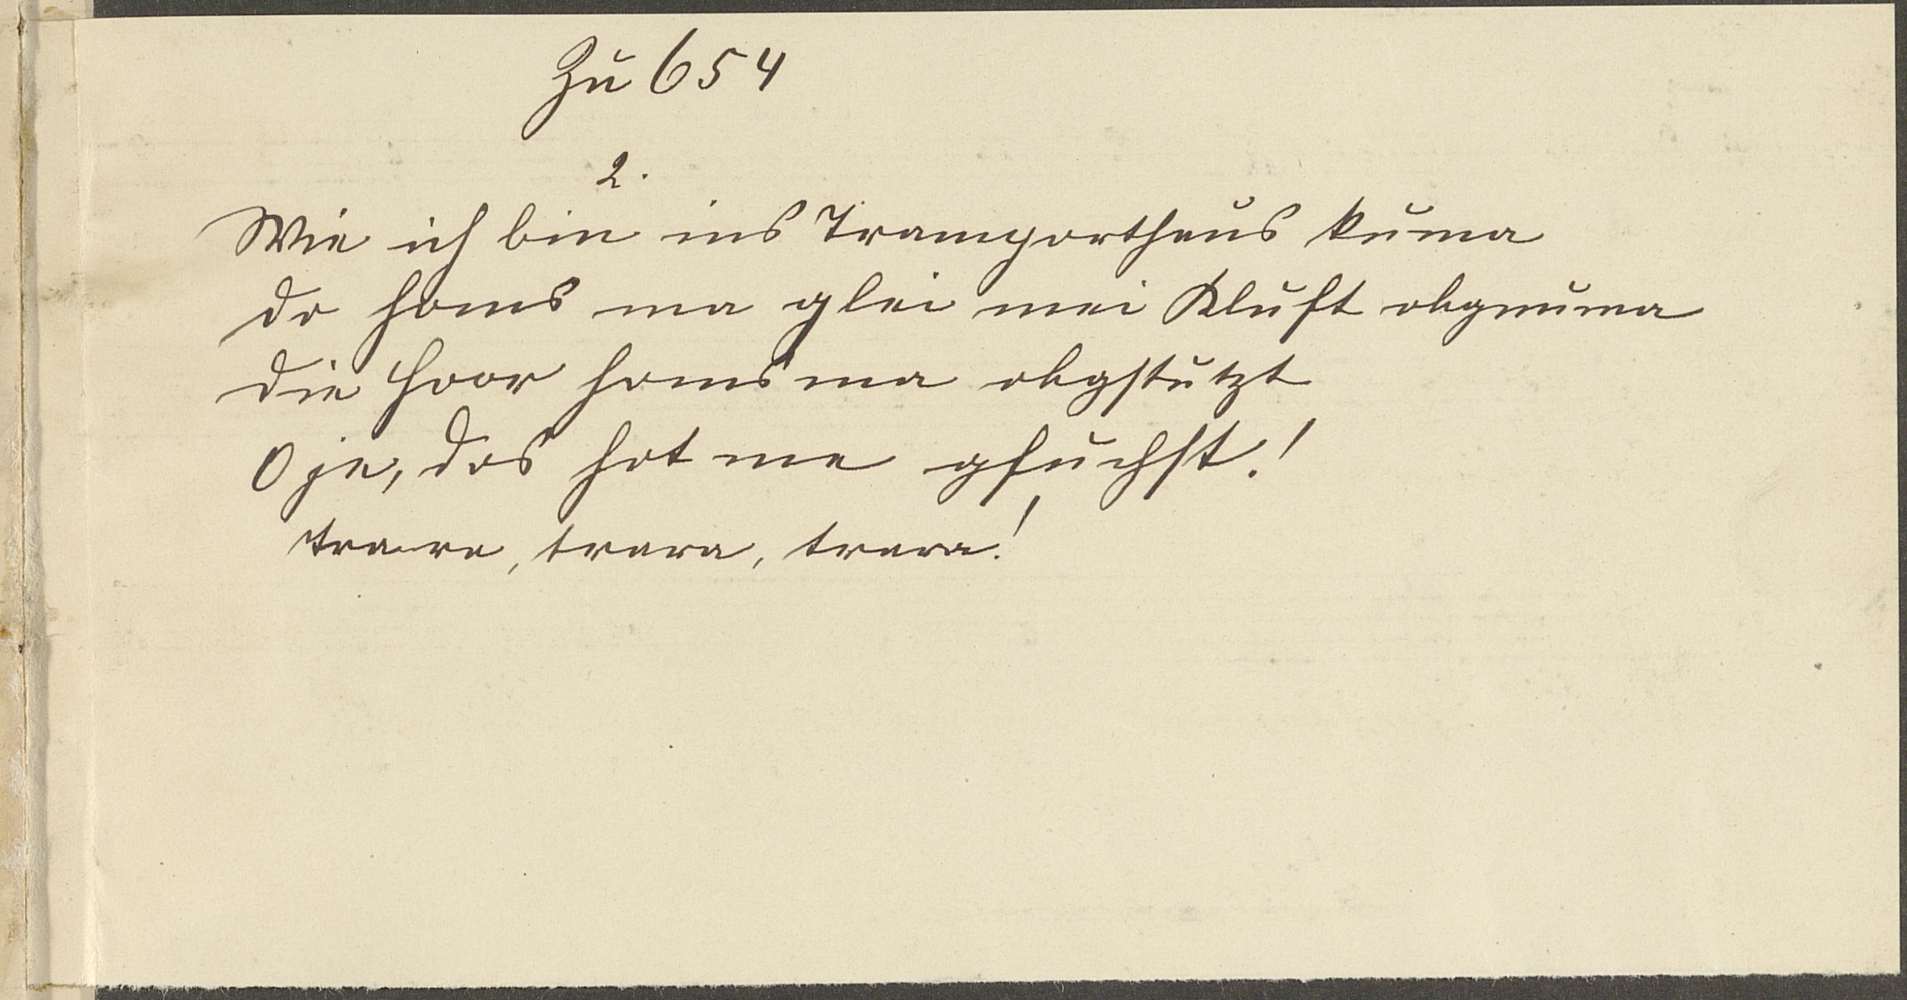 Zu 654
2.
Wie ich bin ins Transporthaus kuma
do homs ma glei mei Kluft obgnuma
die Hoor homs ma obgstutzt
O je, dos hot me gfuchst!
trara, trara, trara!